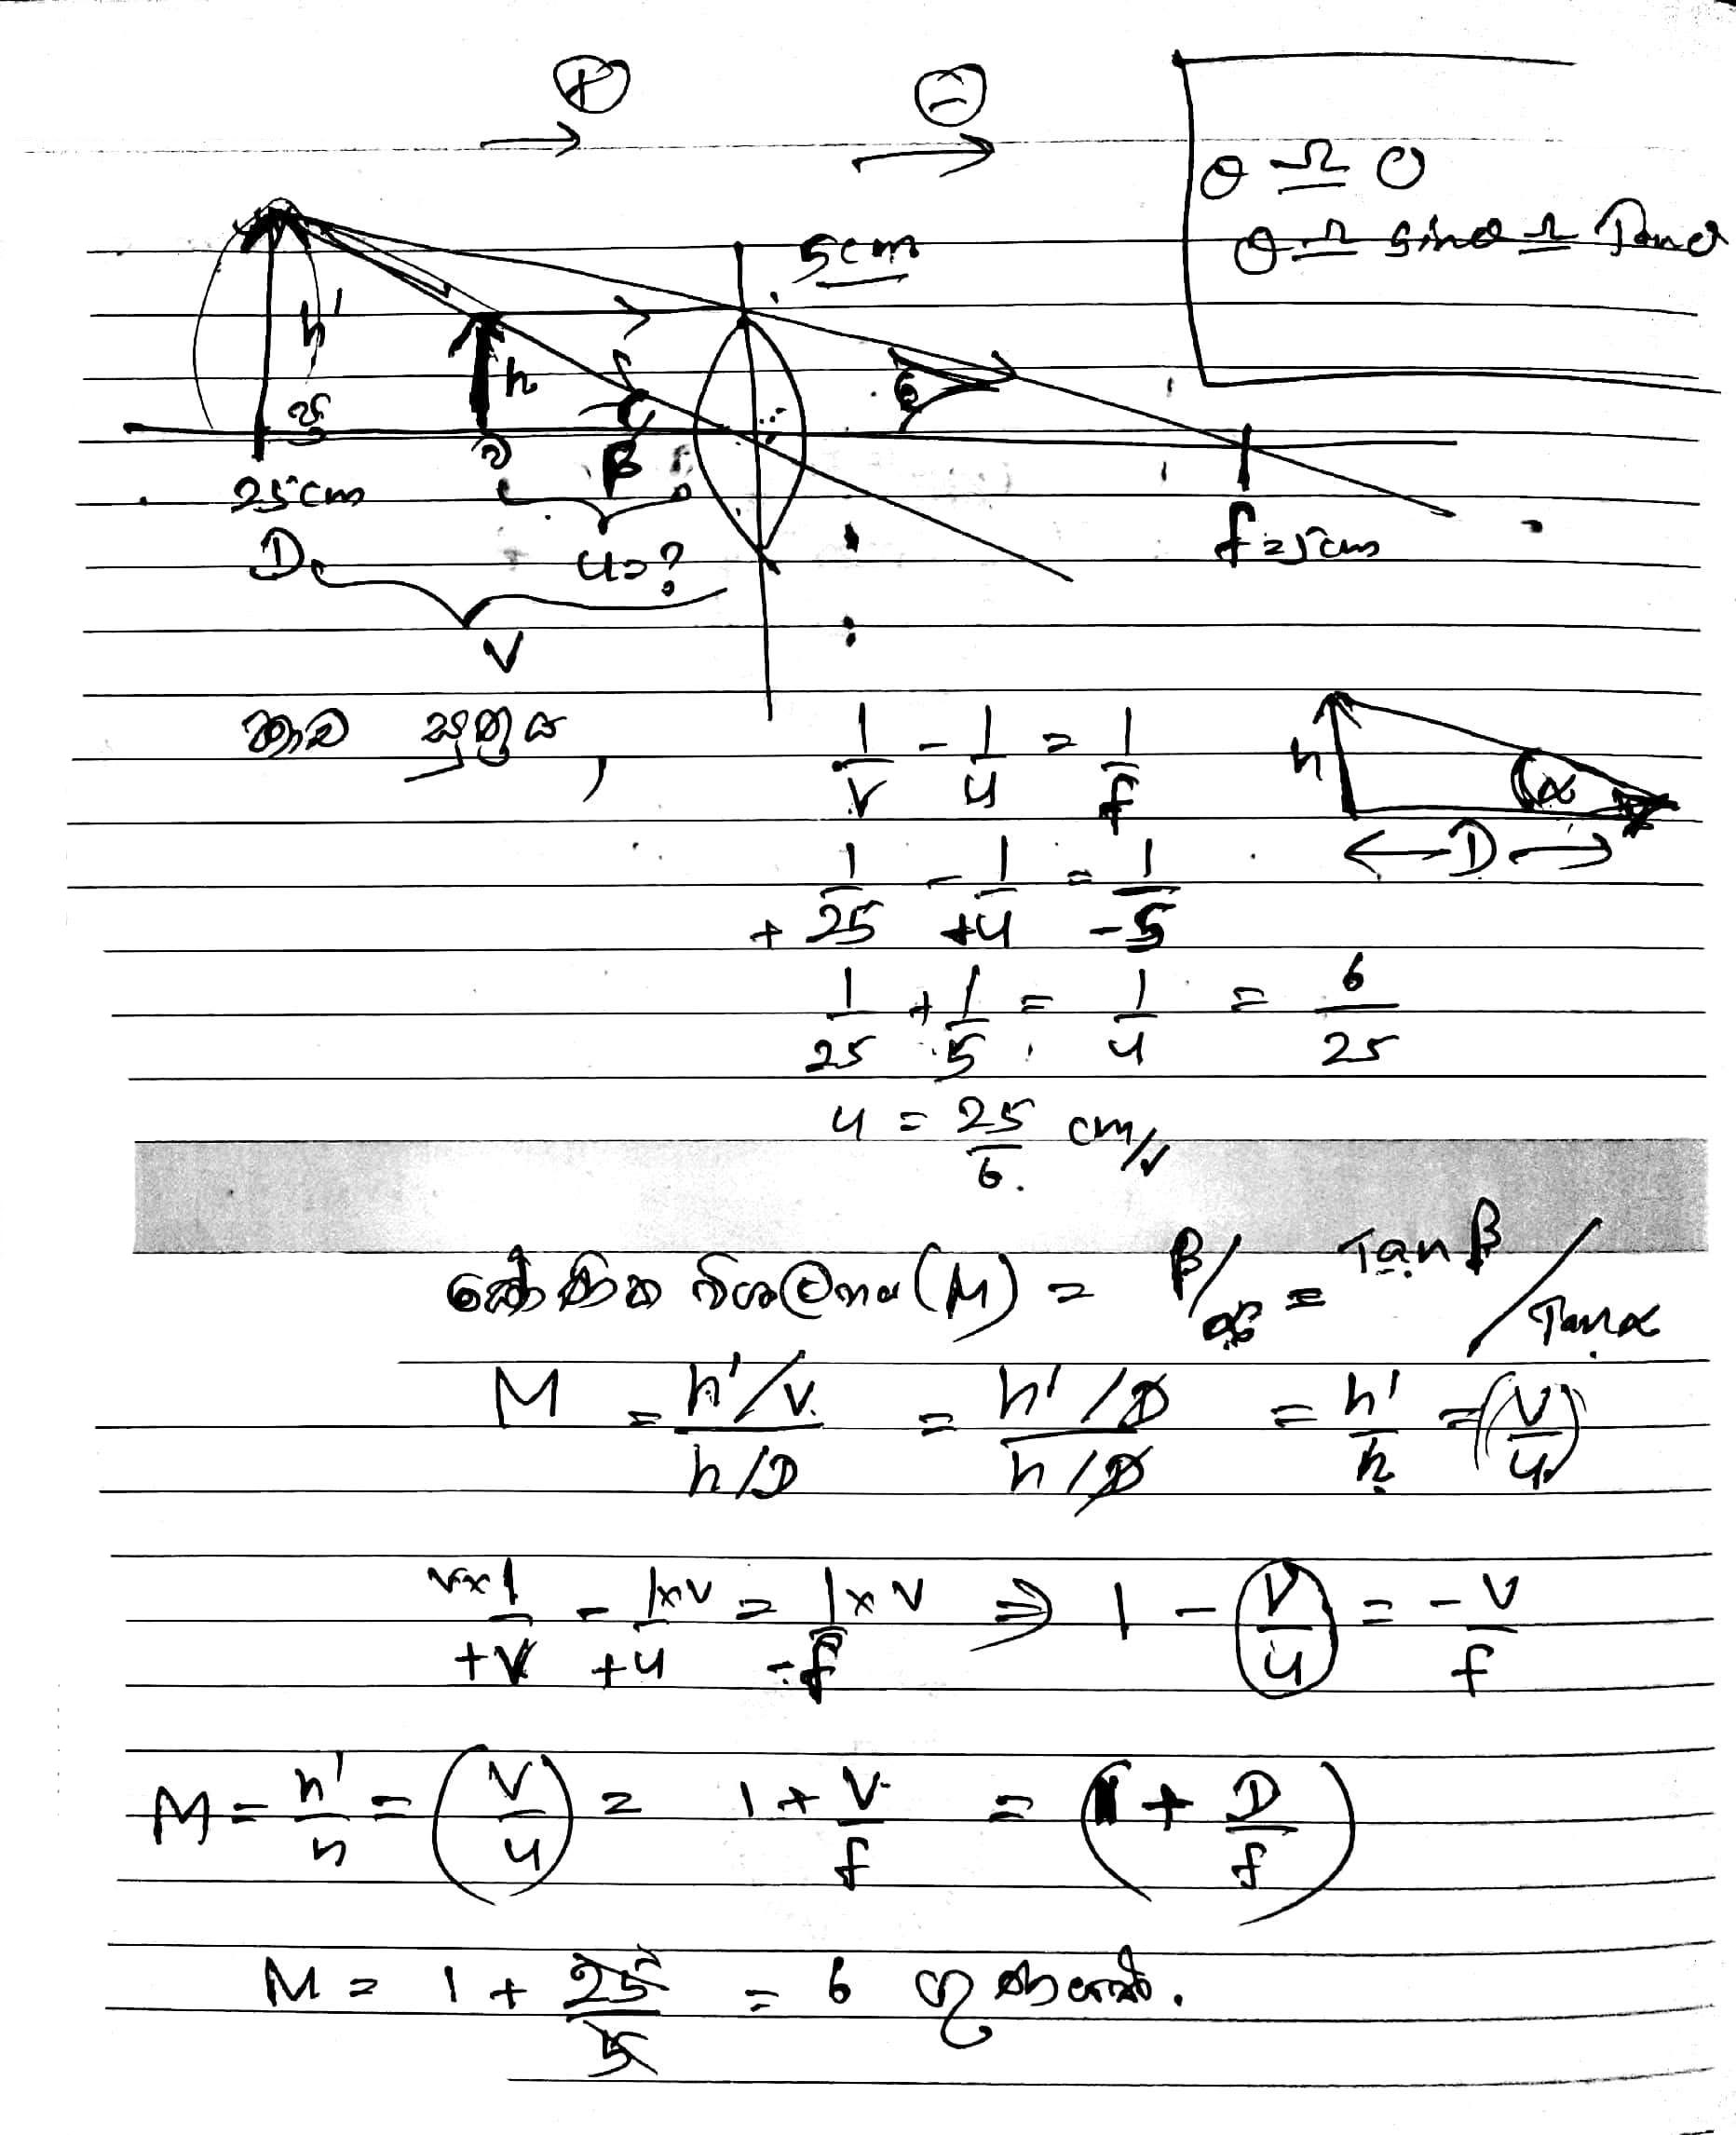 + −
θ ≏ 0
θ ≏ sinθ ≏ Tanθ
5cm
h'
h
25
β
25cm
D u=? f=5cm
V
කාච සූත්‍රය, 1/V - 1/u = 1/f
h α
D
1/+25 - 1/+u = 1/-5
1/25 + 1/5 = 1/u = 6/25
u = 25/6 cm//
කෝණික විශාලනය (M) = β/α = Tanβ/Tanα
M = (h'/V)/(h/D) = (h'/D)/(h/D) = h'/h = (V/u)
V×1/+V - 1×V/+u = 1×V/-f ⇒ 1 - V/u = -V/f
M = h'/h = (V/u) = 1 + V/f = (1 + D/f)
M = 1 + 25/5 = 6 ගුණයක්.